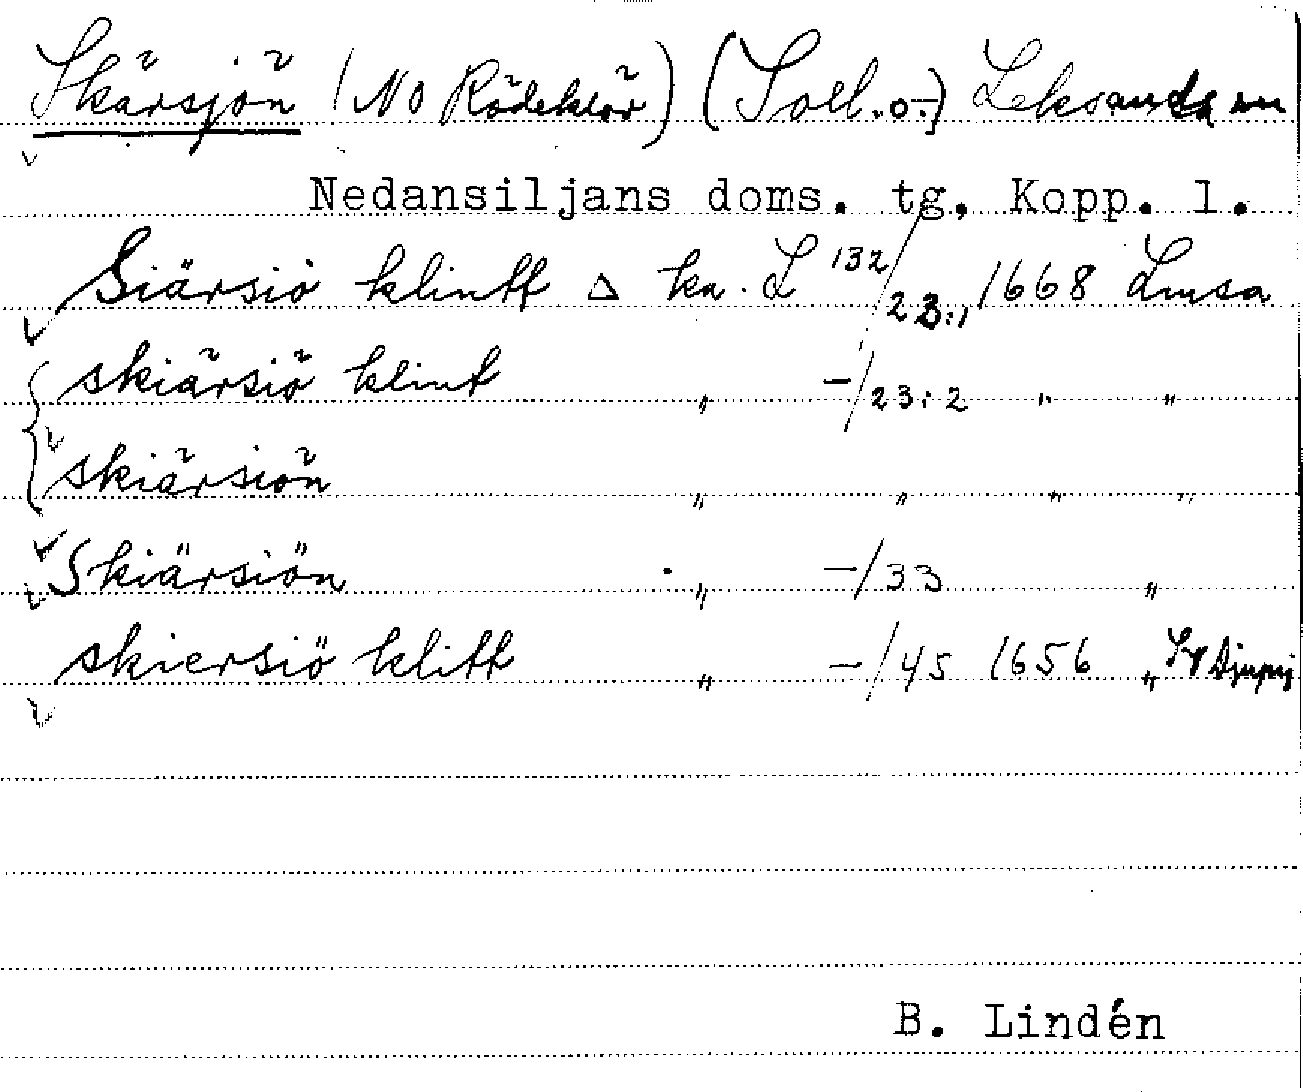 Skärsjön (NO Rödeklör) (Soll. o.) Leksands sn
Nedansiljans doms. tg, Kopp. l.
Siärsiö klintt △ ka. L 132/23:1 1668 Limsa
skiärsiö klint " —/23:2 " "
skiärsiön " " " "
Skiärsiön " —/33 "
skiersiö klitt " —/45 1656 "
B. Lindén